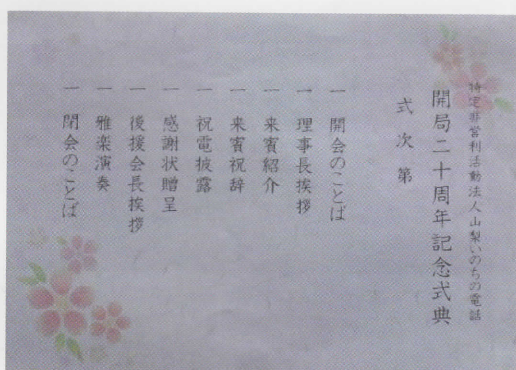 特定非営利活動法人山梨いのちの電話
開局二十周年記念式典
式次第
一 開会のことば
一 理事長挨拶
一 来賓紹介
一 来賓祝辞
一 祝電披露
一 感謝状贈呈
一 後援会長挨拶
一 雅楽演奏
一 閉会のことば